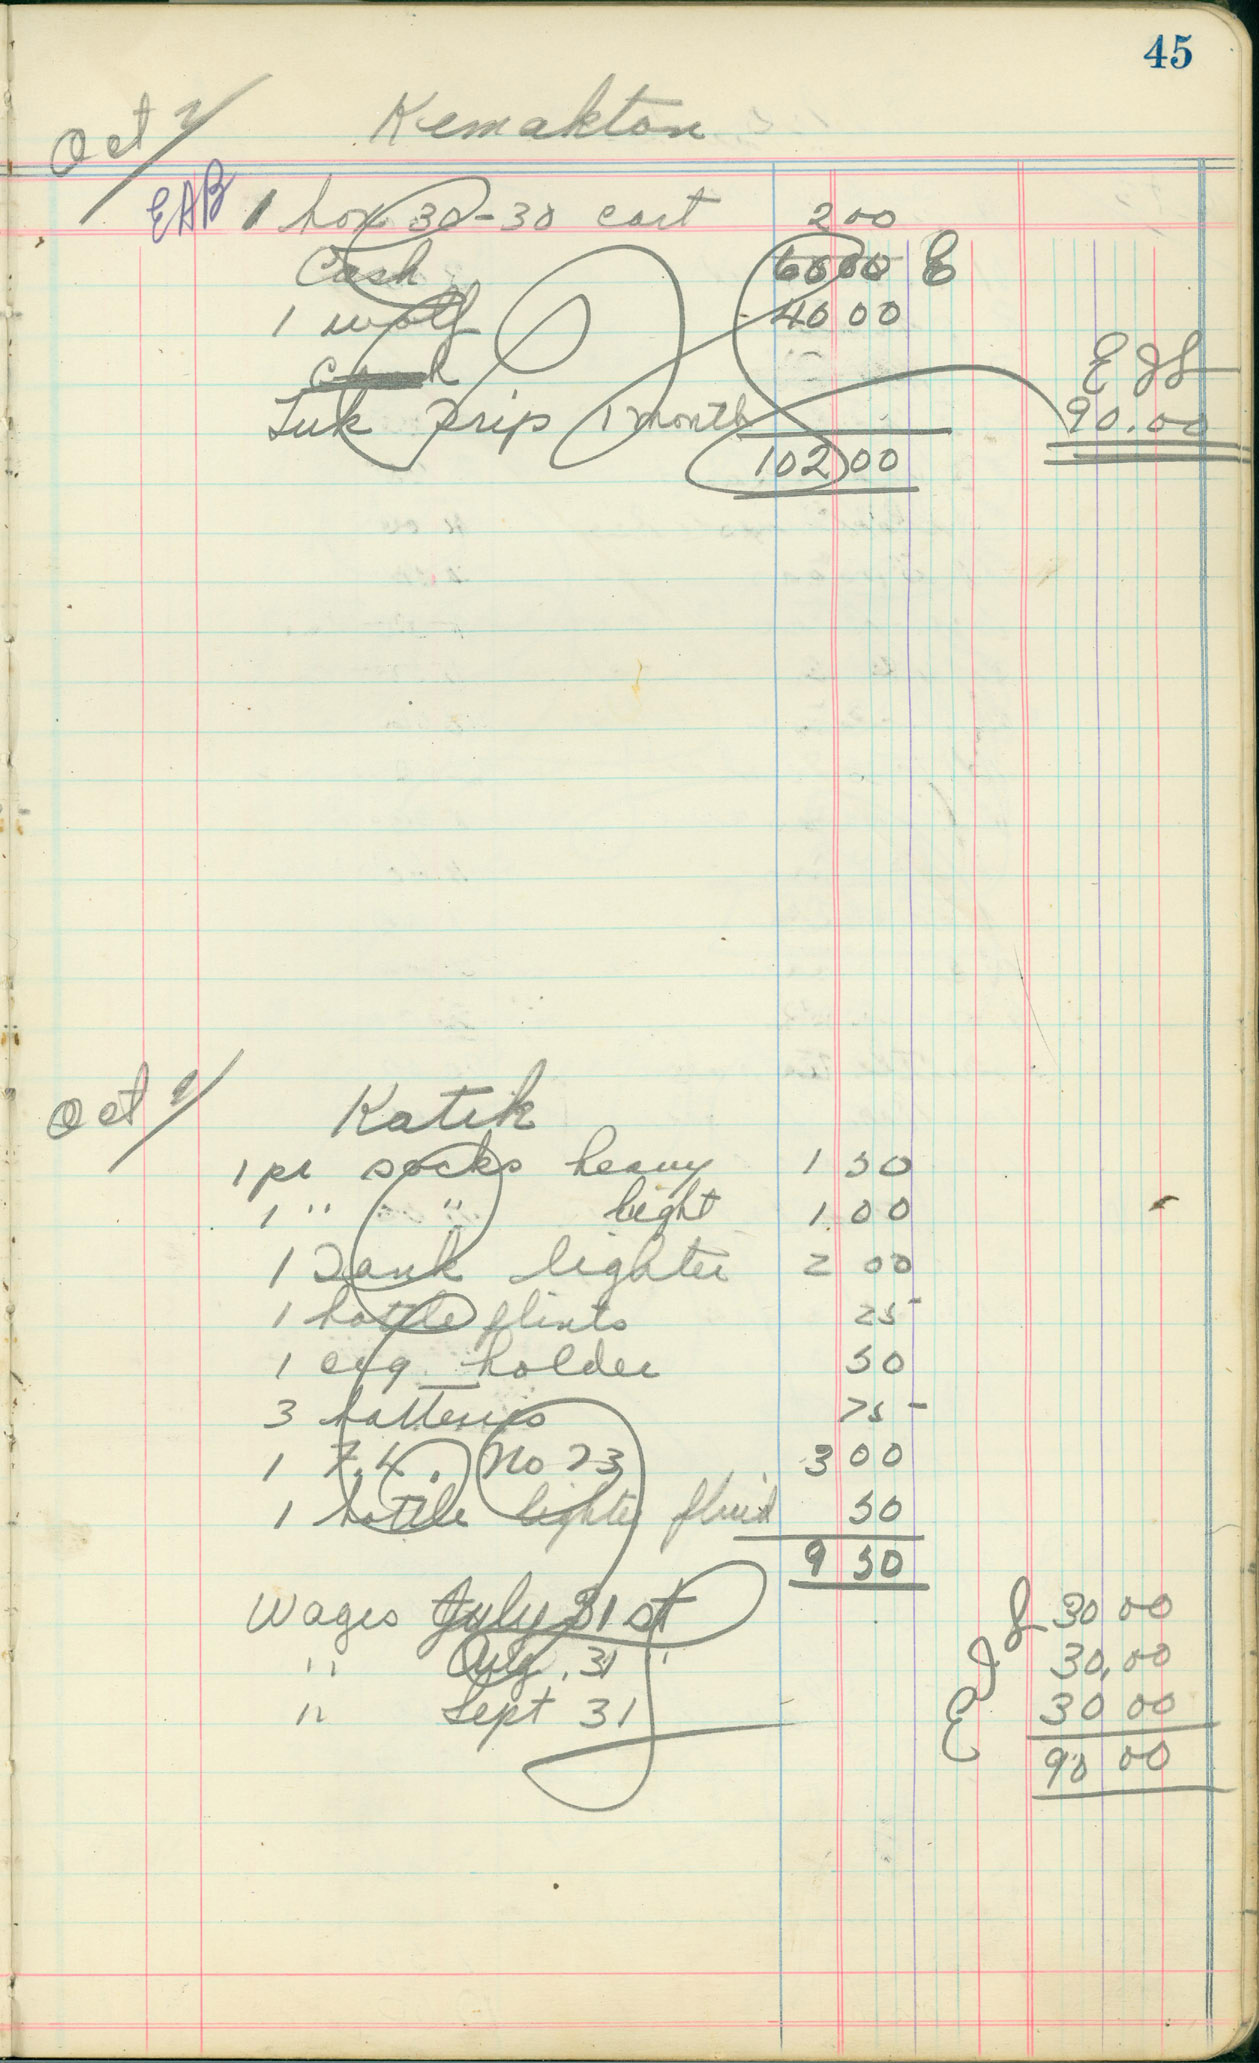 45
Oct 2/ Kemakton
EAB 1 box 30-30 cart 2 00
Cash 60 00 E
1 wolf 40 00
E J L
Tuk Trip 1 month 90.00
102 00
Oct 2/ Katik
1 pr socks heavy 1 50
1 " " light 1 00
1 Tank lighter 2 00
1 bottle flints 25
1 cig holder 50
3 batteries 75
1 F.L. No 73 3 00
1 bottle lighter fluid 50
9 50
Wages July 31 st 30 00
" Aug. 31 " 30.00
" Sept 31 30 00
E J L
90 00